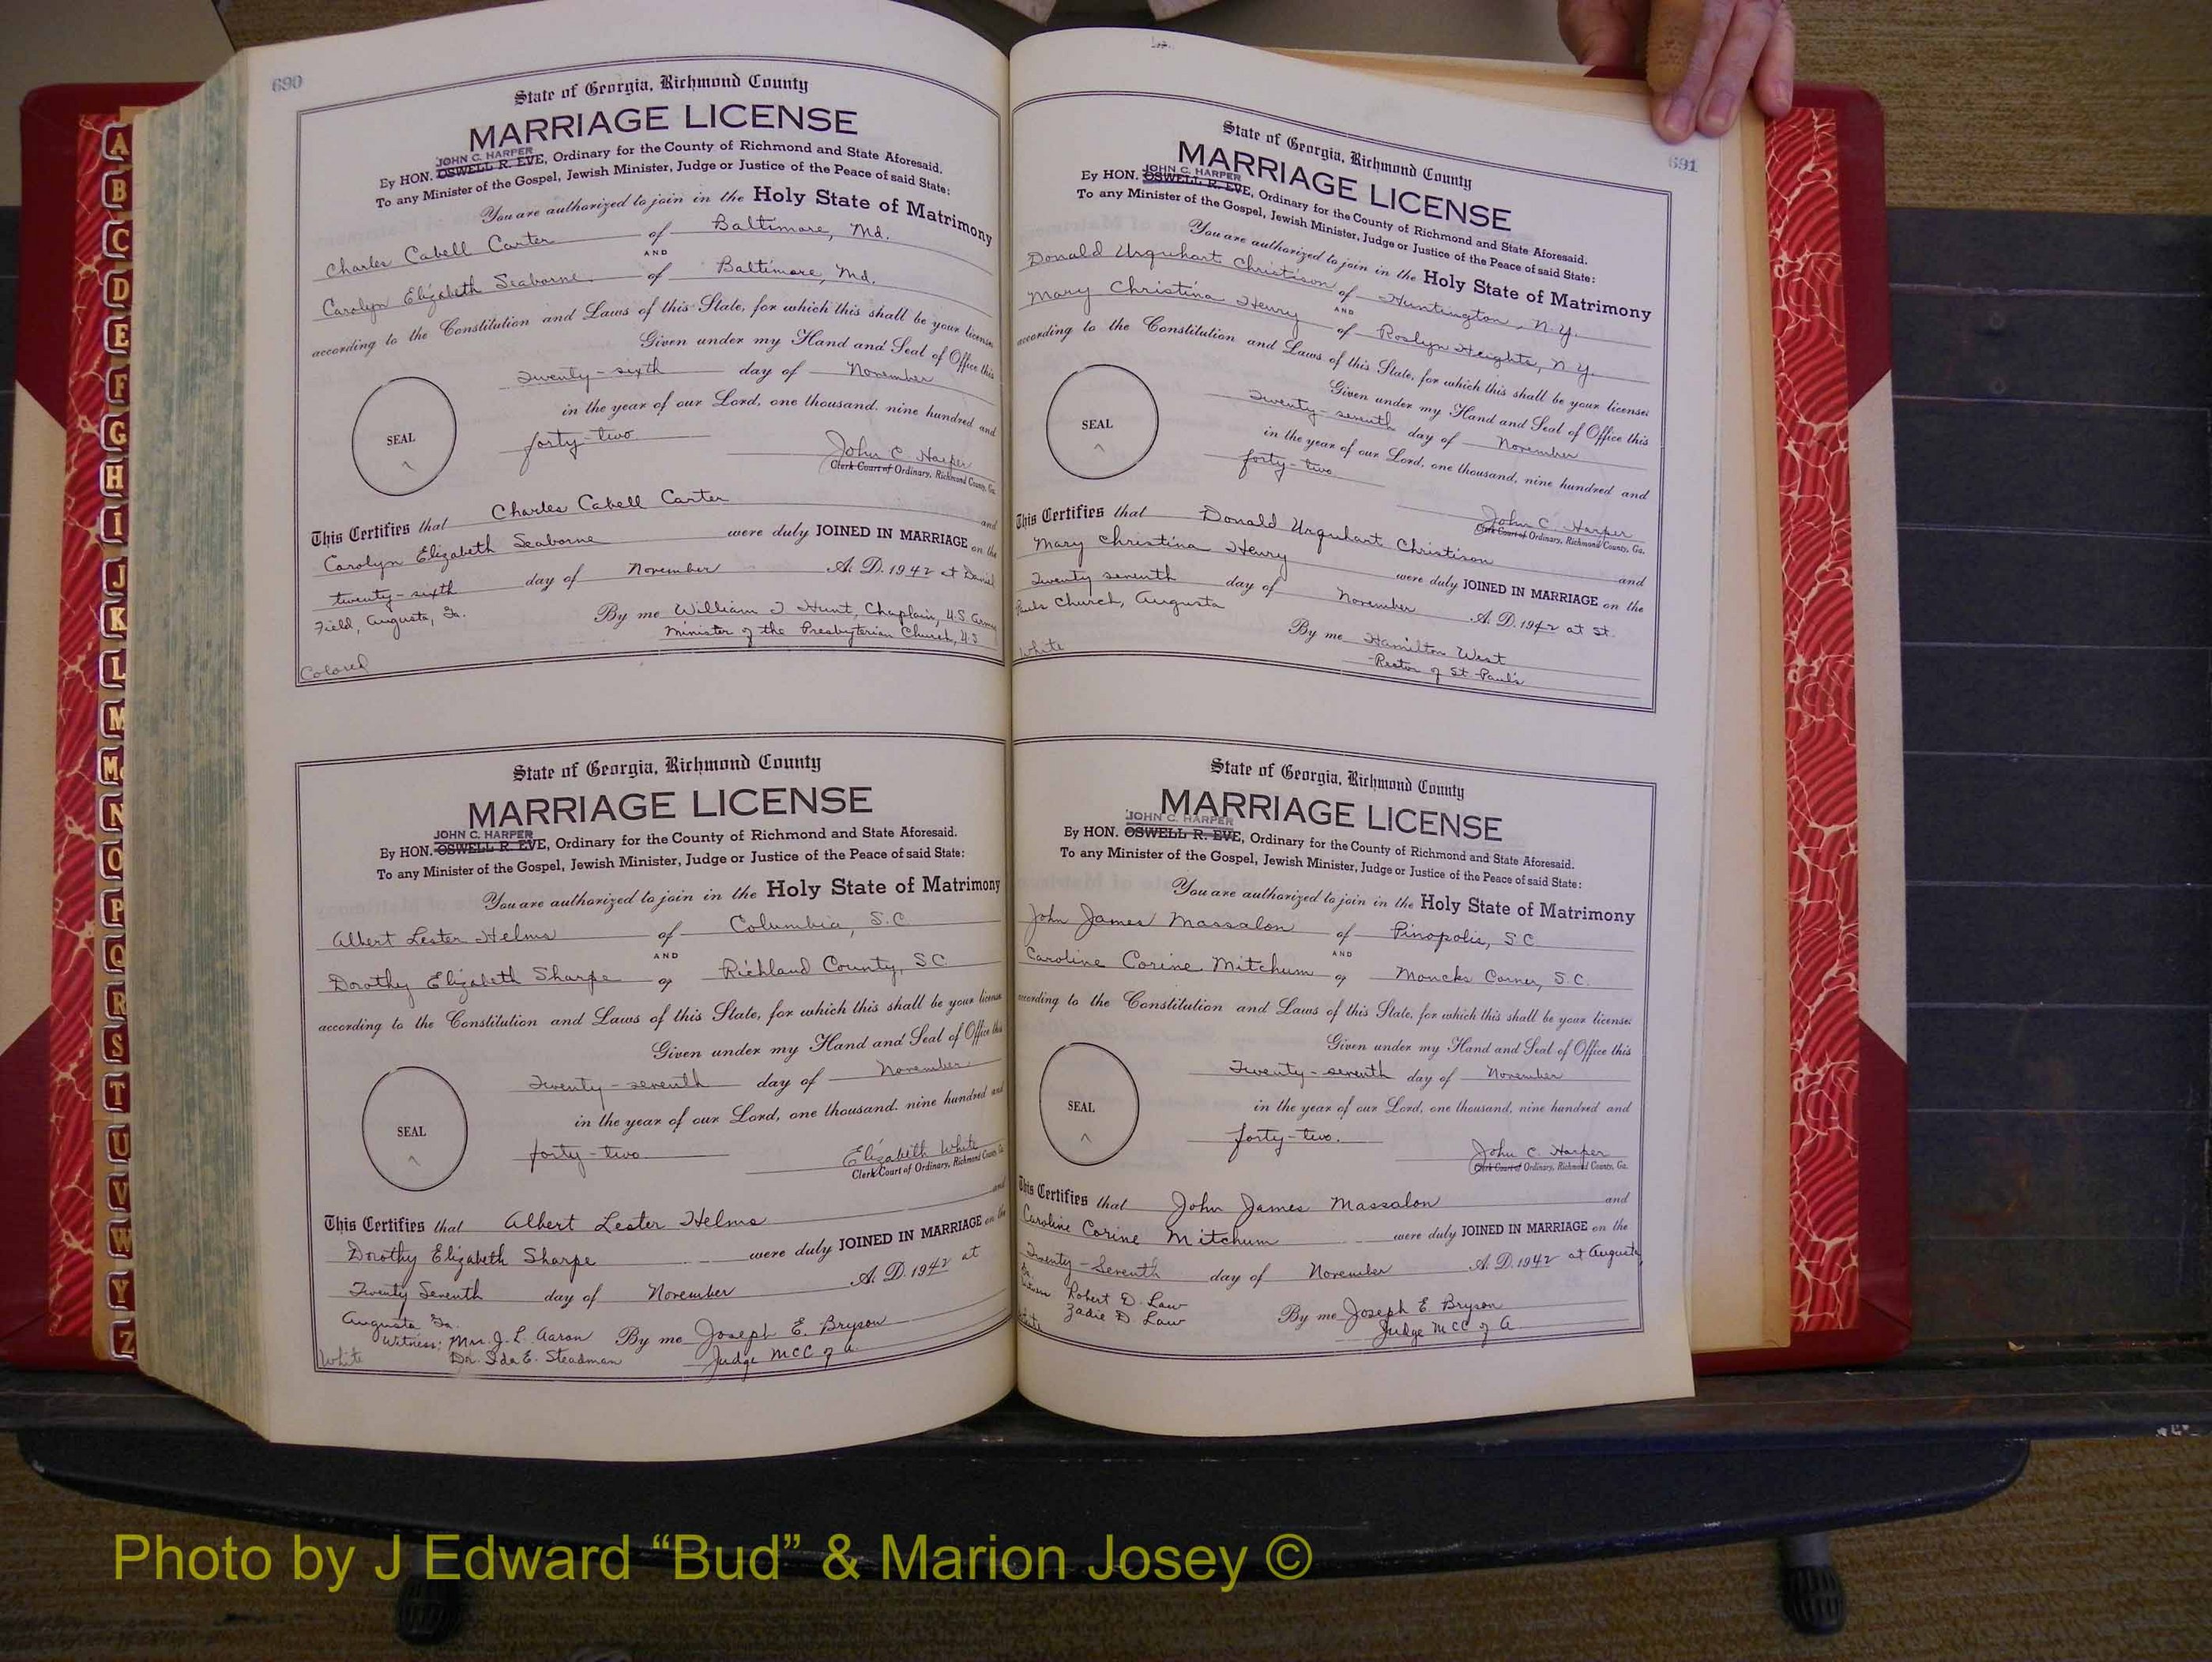 690
State of Georgia, Richmond County
MARRIAGE LICENSE
JOHN C. HARPER
By HON. OSWELL R. EVE, Ordinary for the County of Richmond and State Aforesaid.
To any Minister of the Gospel, Jewish Minister, Judge or Justice of the Peace of said State:
You are authorized to join in the Holy State of Matrimony
Charles Cabell Carter of Baltimore, Md.
AND
Carolyn Elizabeth Seaborne of Baltimore, Md.
according to the Constitution and Laws of this State, for which this shall be your license
Given under my Hand and Seal of Office this
Twenty-sixth day of November
in the year of our Lord, one thousand, nine hundred and
forty-two
SEAL
John C Harper
Clerk Court of Ordinary, Richmond County, Ga.
This Certifies that Charles Cabell Carter and
Carolyn Elizabeth Seaborne were duly JOINED IN MARRIAGE on the
twenty-sixth day of November A. D. 1942 at Daniel
Field, Augusta, Ga.
By me William J Hunt, Chaplain, U.S. Army
Minister of the Presbyterian Church, U.S
Colored
State of Georgia, Richmond County
MARRIAGE LICENSE
JOHN C. HARPER
By HON. OSWELL R. EVE, Ordinary for the County of Richmond and State Aforesaid.
To any Minister of the Gospel, Jewish Minister, Judge or Justice of the Peace of said State:
You are authorized to join in the Holy State of Matrimony
Albert Lester Helms of Columbia, S.C.
AND
Dorothy Elizabeth Sharpe of Richland County, SC
according to the Constitution and Laws of this State, for which this shall be your license
Given under my Hand and Seal of Office this
Twenty-seventh day of November
in the year of our Lord, one thousand, nine hundred and
forty-two
SEAL
Elizabeth White
Clerk Court of Ordinary, Richmond County, Ga.
This Certifies that Albert Lester Helms and
Dorothy Elizabeth Sharpe were duly JOINED IN MARRIAGE on the
Twenty Seventh day of November A. D. 1942 at
Augusta Ga.
Witness: Mrs. J. L. Aaron
Dr. Ida E. Steadman
By me Joseph E. Bryson
Judge MCC of A.
White
691
State of Georgia, Richmond County
MARRIAGE LICENSE
JOHN C. HARPER
By HON. OSWELL R. EVE, Ordinary for the County of Richmond and State Aforesaid.
To any Minister of the Gospel, Jewish Minister, Judge or Justice of the Peace of said State:
You are authorized to join in the Holy State of Matrimony
Donald Urquhart Christison of Huntington, N.Y.
AND
Mary Christina Henry of Roslyn Heights, N.Y.
according to the Constitution and Laws of this State, for which this shall be your license:
Given under my Hand and Seal of Office this
Twenty-seventh day of November
in the year of our Lord, one thousand, nine hundred and
forty-two
SEAL
John C. Harper
Clerk Court of Ordinary, Richmond County, Ga.
This Certifies that Donald Urquhart Christison and
Mary Christina Henry were duly JOINED IN MARRIAGE on the
Twenty seventh day of November A. D. 1942 at St.
Pauls Church, Augusta
By me Hamilton West
Rector of St Paul's
White
State of Georgia, Richmond County
MARRIAGE LICENSE
JOHN C. HARPER
By HON. OSWELL R. EVE, Ordinary for the County of Richmond and State Aforesaid.
To any Minister of the Gospel, Jewish Minister, Judge or Justice of the Peace of said State:
You are authorized to join in the Holy State of Matrimony
John James Massalon of Pinopolis, S.C.
AND
Caroline Corine Mitchum of Moncks Corner, S.C.
according to the Constitution and Laws of this State, for which this shall be your license:
Given under my Hand and Seal of Office this
Twenty-seventh day of November
in the year of our Lord, one thousand, nine hundred and
forty-two.
SEAL
John C. Harper
Clerk Court of Ordinary, Richmond County, Ga.
This Certifies that John James Massalon and
Caroline Corine Mitchum were duly JOINED IN MARRIAGE on the
Twenty-Seventh day of November A. D. 1942 at Augusta,
Ga.
Witness Robert D. Law
Zadie D Law
By me Joseph E. Bryson
Judge MCC of A
White
A
B
C
D
E
F
G
H
I
J
K
L
M
Mc
N
O
P
Q
R
S
T
U
V
W
Y
Z
Photo by J Edward “Bud” & Marion Josey ©